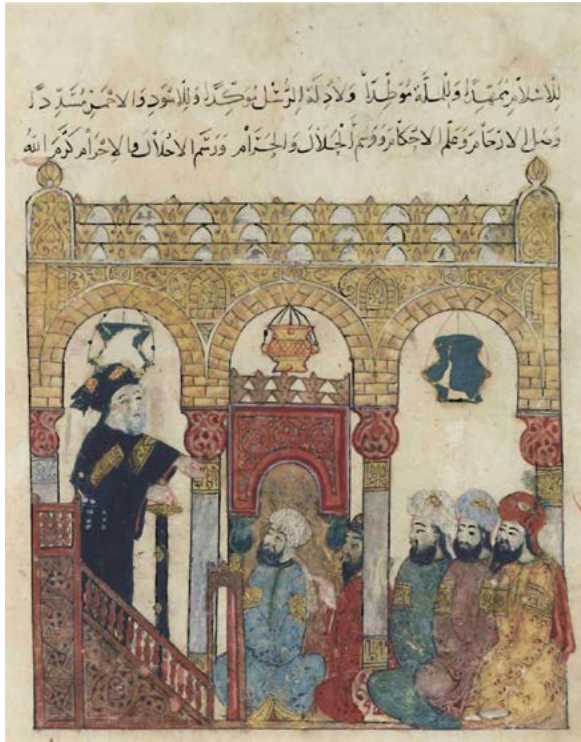 للاسْلام مُمَهّدًا وَللملَّة مُوَطّدًا وَلادلَة الرُسُل مُوَكّدًا وَللاسْوَد وَالاحْمَر مُسَدّدًا
وَصَل الارْحَامَ وَعَلم الاحْكامَ وَوَسَم الحَلَالَ وَالحَرَام وَرَسَم الاحْلَالَ وَالاحْرَام كَرَّمَ اللهُ